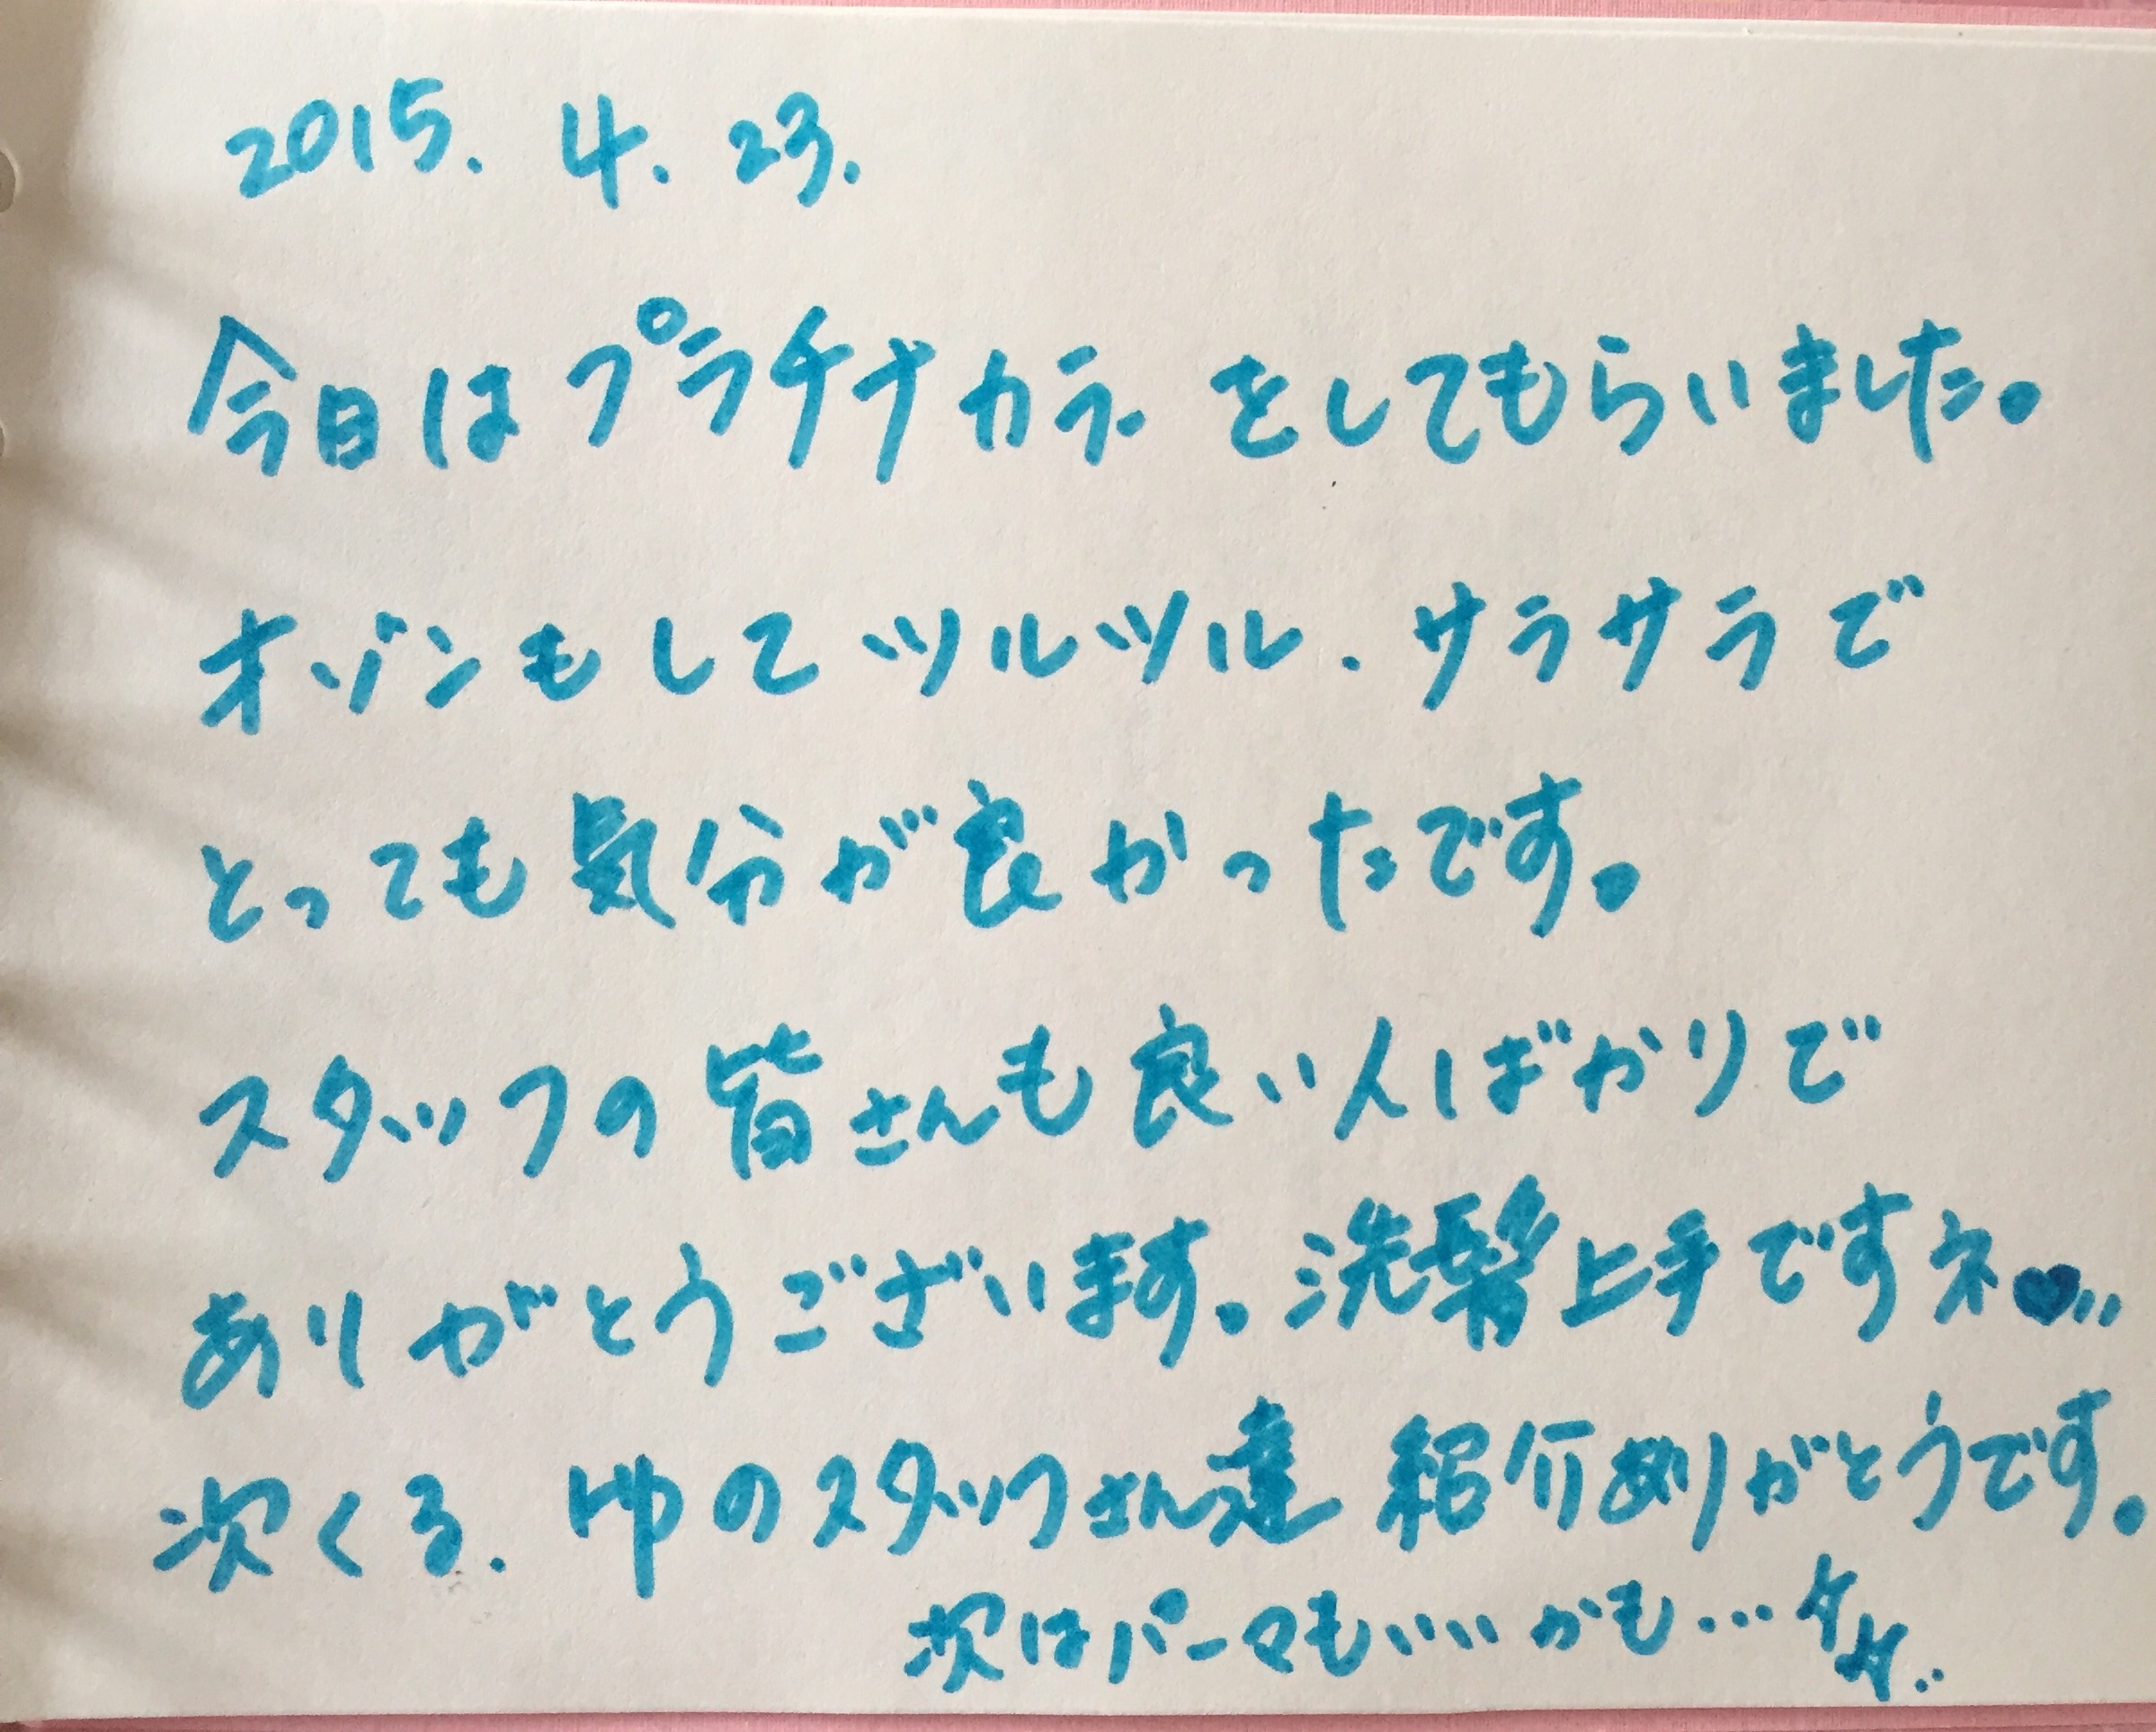 2015. 4. 23.
今日はプラチナカラーをしてもらいました。
オゾンもしてツルツル.サラサラで
とっても気分が良かったです。
スタッフの皆さんも良い人ばかりで
ありがとうございます。洗髪上手ですネ♥...
次くる. ゆのスタッフさん達 紹介ありがとうです。
次はパーマもいいかも...